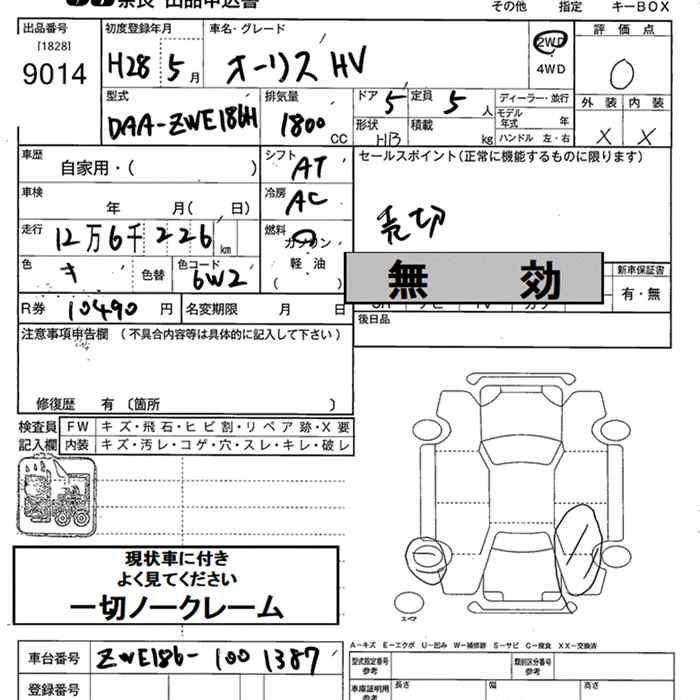 奈良 出品申込書
その他 指定 キーBOX
出品番号
[1828]
9014
初度登録年月
H28 5月
車名・グレード
オーリス HV
2WD
4WD
評価点
0
型式
DAA-ZWE186H
排気量
1800 CC
ドア 5
定員 5 人
形状 HB
積載 kg
ディーラー・並行
モデル年式 年
ハンドル 左・右
外装 内装
X X
車歴
自家用・( )
シフト AT
セールスポイント(正常に機能するものに限ります)
売切
車検
年 月( 日)
冷房 AC
走行
12万6千226 km
燃料
ガソリン
軽・油
( )
色
キ
色替
色コード
6W2
無効
新車保証書
有・無
R券 10490 円
名変期限 月 日
後日品
注意事項申告欄 (不具合内容等は具体的に記入して下さい)
修復歴 有〔箇所 〕
検査員記入欄
FW キズ・飛石・ヒビ割・リペア跡・X要
内装 キズ・汚レ・コゲ・穴・スレ・キレ・破レ
現状車に付き
よく見てください
一切ノークレーム
スペア
A-キズ E-エクボ U-凹み W-補修跡 S-サビ C-腐食 XX-交換済
車台番号 ZWE186-1001387
登録番号
型式指定番号 参考
類別区分番号 参考
車庫証明用 参考
長さ 幅 高さ